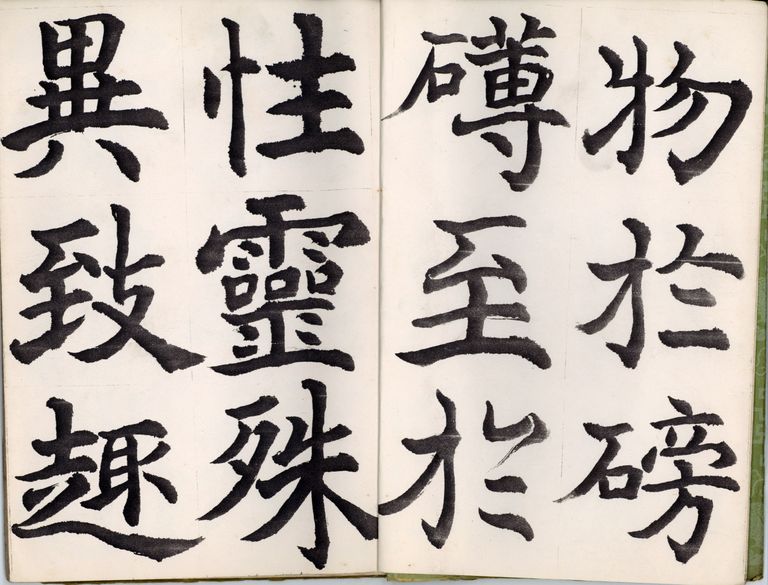 物於磅
礡至於
性靈殊
異致趣